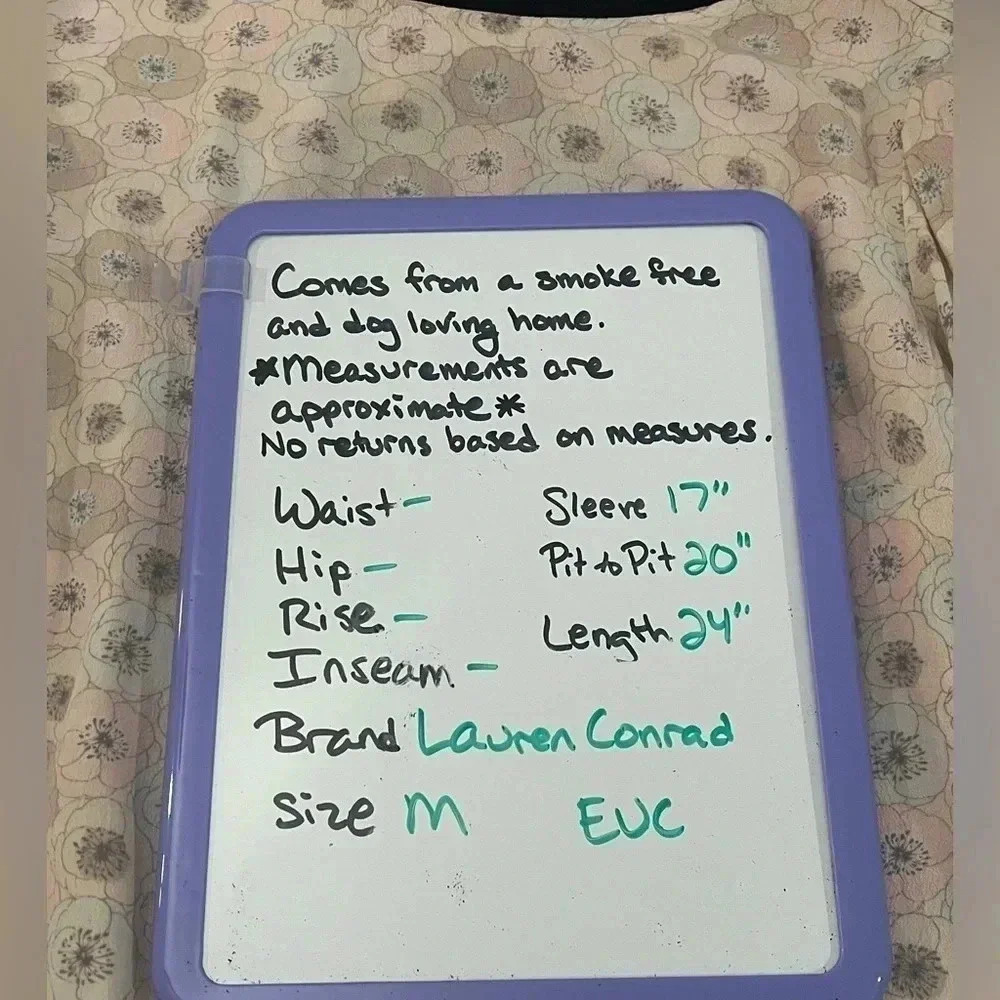 Comes from a smoke free
and dog loving home.
*Measurements are
approximate*
No returns based on measures.
Waist -
Sleeve 17"
Hip -
Pit to Pit 20"
Rise -
Length 24"
Inseam -
Brand Lauren Conrad
Size M
EUC